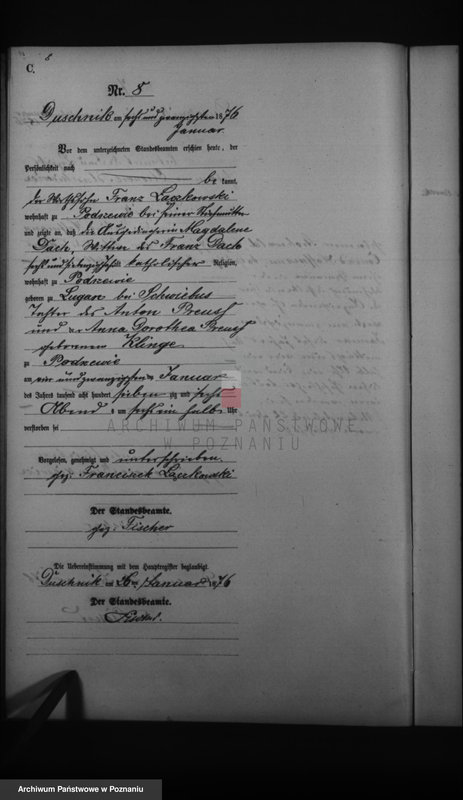 8
C.
Nr. 8
Duschnik am sechs und zwanzigsten 1876
Januar
Vor dem unterzeichneten Standesbeamten erschien heute, der
Persönlichkeit nach
be kannt,
der Wirthssohn Franz Laczkowski
wohnhaft zu Podrzewie bei seiner
und zeigte an, daß die Magdalene
Dach, Wittwe des Franz Dach
sechs und siebenzig Jahr katholischer Religion,
wohnhaft zu Podrzewie
geboren zu Lugau bei Schwiebus
Tochter des Anton Preuss
und der Anna Dorothea Preuss
geborenen Klinge
zu Podrzewie
am ein und zwanzigsten Januar
des Jahres tausend acht hundert sieben zig und sechs
Abend s um sechs ein halb Uhr
verstorben sei
ARCHIWUM PAŃSTWOWE
W POZNANIU
Vorgelesen, genehmigt und unterschrieben
gez: Franciszek Laczkowski
Der Standesbeamte.
gez: Fischer
Die Uebereinstimmung mit dem Hauptregister beglaubigt.
Duschnik am 26ten Januar 1876
Der Standesbeamte.
Archiwum Państwowe w Poznaniu